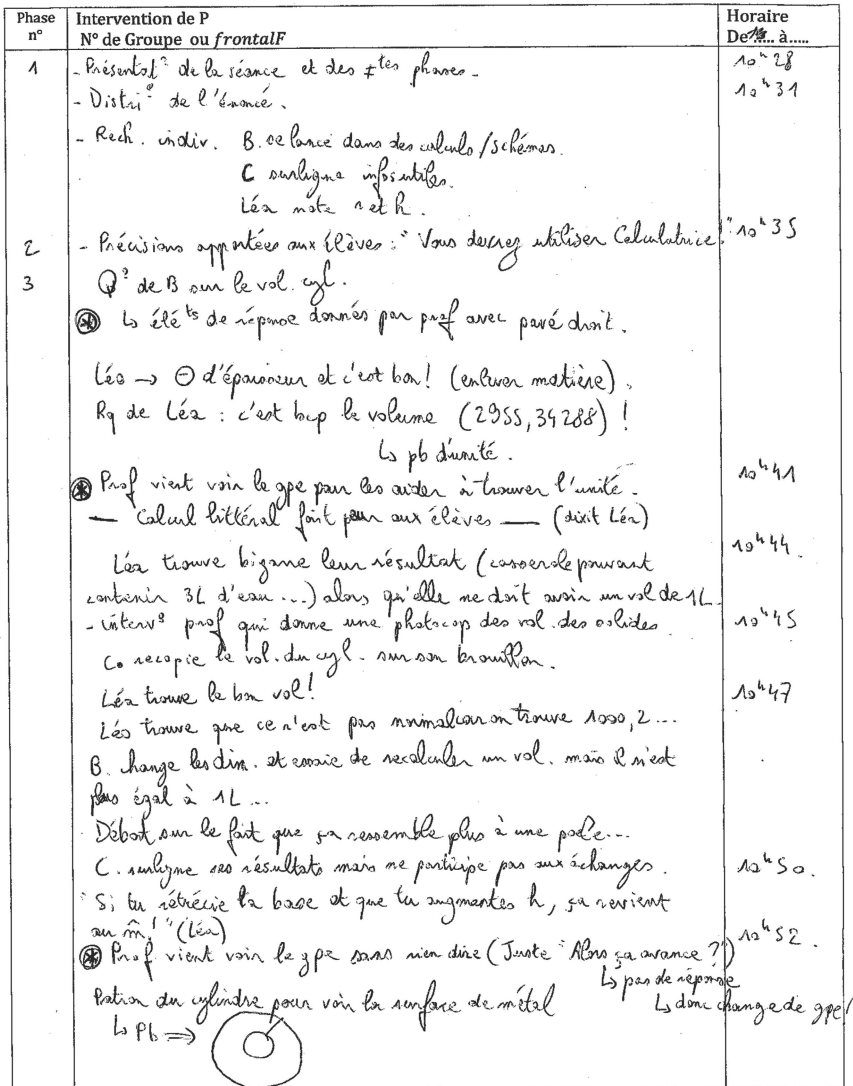 Phase n° Intervention de P N° de Groupe ou frontalF Horaire De ..... à.....
1 - Présentat° de la séance et des ≠tes phases - 10h28
- Distri° de l'énoncé. 10h31
- Rech. indiv. B. se lance dans des calculs / schémas.
C surligne infos utiles.
Léa note r et h.
2 - Précisions apportées aux élèves : "Vous devrez utiliser Calculatrice !" 10h35
3 Q° de B sur le vol. cyl.
⊛ ↳ élé ts de réponse donnés par prof avec pavé droit.
Léa → ⊖ d'épaisseur et c'est bon! (enlever matière).
Rq de Léa : c'est bcp le volume (2955,34288) !
↳ pb d'unité.
⊛ Prof vient voir le gpe pour les aider à trouver l'unité. 10h41
— Calcul littéral fait peur aux élèves — (dixit Léa)
Léa trouve bizarre leur résultat (casserole pouvant 10h44.
contenir 3L d'eau ...) alors qu'elle ne doit avoir un vol de 1L
- interv° prof qui donne une photocop des vol. des solides 10h45
C. recopie le vol. du cyl. sur son brouillon.
Léa trouve le bon vol! 10h47
Léa trouve que ce n'est pas normal car on trouve 1000,2...
B. change les dim. et essaie de recalculer un vol. mais il n'est
plus égal à 1L ...
Débat sur le fait que ça ressemble plus à une poêle...
C. surligne ses résultats mais ne participe pas aux échanges. 10h50.
"Si tu rétrécie ta base et que tu augmentes h, ça revient
au m̂!" (Léa) 10h52.
⊛ Prof vient voir le gpe sans rien dire (Juste "Alors ça avance ?")
↳ pas de réponse
Patron du cylindre pour voir la surface de métal ↳ donc change de gpe!
↳ Pb ⇒